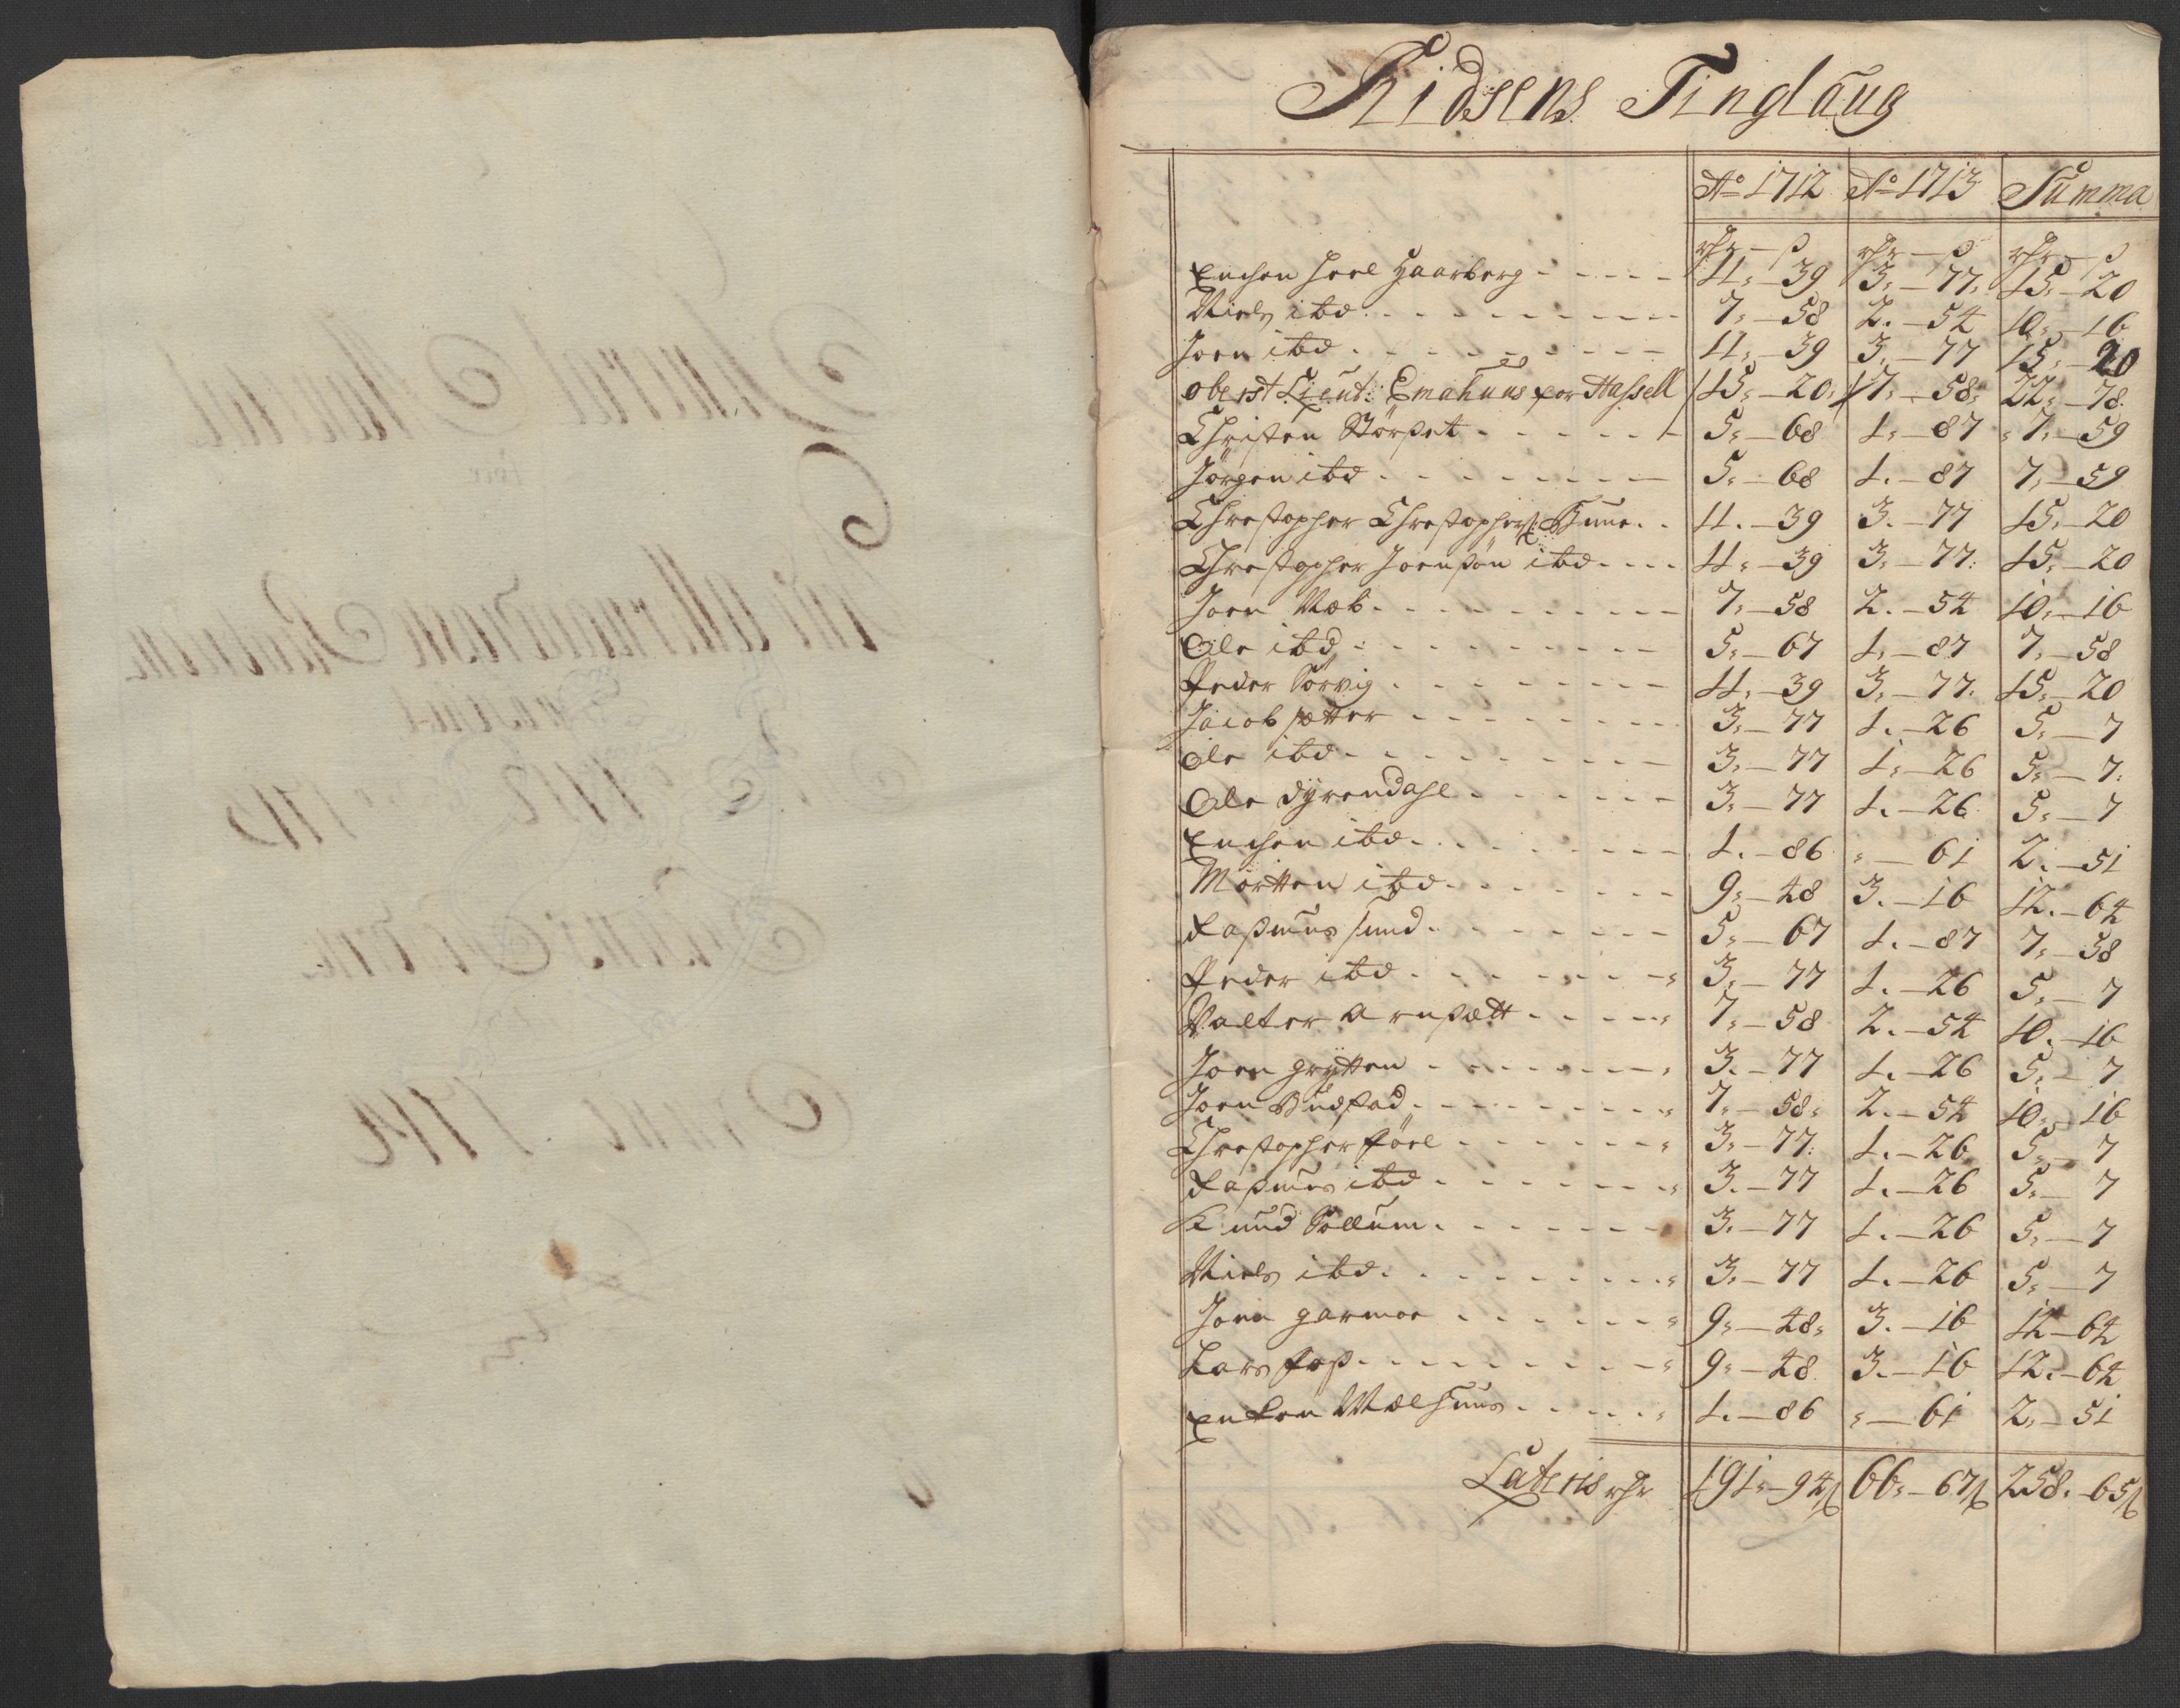 Ridsens Tinglaug
Ao 1712 Ao 1713 Summa
rdr — ß rdr — ß rdr — ß
Enchen Joel Haarberg - - - - - 11: — 39 3: — 77: 15: — 20
Niels ibd - - - - - - - - - 7: — 58 2. — 54 10: — 16
Joen ibd - - - - - - - - - 11: — 39 3. — 77 15: — 20
oberst Lieut: Emahuus por Hassell 15: — 20: 7: — 58: 22: — 78
Christen Störset - - - - - - 5: — 68 1: — 87 7: — 59
Jörgen ibd - - - - - - - - 5: — 68 1. — 87 7: — 59
Chrestopher Chrestophers: Huue - - 11. — 39 3. — 77 15: — 20
Chrestopher Joensön ibd - - - - 11: — 39 3: — 77: 15: — 20
Joen Næb - - - - - - - - - 7: — 58 2. — 54 10: — 16
Ole ibd - - - - - - - - - 5: — 67 1. — 87 7: — 58
Peder Sörvig - - - - - - - - 11: — 39 3: — 77: 15: — 20
Jacob sætter - - - - - - - - 3: — 77 1. — 26 5: — 7
Ole ibd - - - - - - - - - 3: — 77 1: — 26 5: — 7:
Ole Dyrendahl - - - - - - - 3: — 77 1. — 26 5: — 7
Enchen ibd - - - - - - - - 1. — 86 : — 61 2. — 51
Mortten ibd - - - - - - - 9: — 48 3. — 16 12. — 64
Rasmus sund - - - - - - - - 5: — 67 1. — 87 7: — 58
Peder ibd - - - - - - - - 3: — 77 1. — 26 5: — 7
Valter Arnsætt - - - - - - 7: — 58 2. — 54 10. — 16
Joen grytten - - - - - - - 3. — 77 1. — 26 5: — 7
Joen Budstad - - - - - - - - 7: — 58: 2. — 54 10: — 16
Chrestopher föel - - - - - - 3: — 77: 1. — 26 5: — 7
Rasmus ibd - - - - - - - - 3. — 77 1. — 26 5: — 7
Knud Sollum - - - - - - - - 3. — 77 1. — 26 5: — 7
Niels ibd - - - - - - - - 3. — 77 1. — 26 5: — 7
Joen garmoe - - - - - - - 9: — 48: 3. — 16 12 — 64
Lars foss - - - - - - - - - 9: — 48 3. — 16 12. — 64
Encken Welhuus - - - - - - 1. — 86 : — 61 2: — 51
Lateris rdr 191: — 94ß 66: — 67ß 258. — 65ß